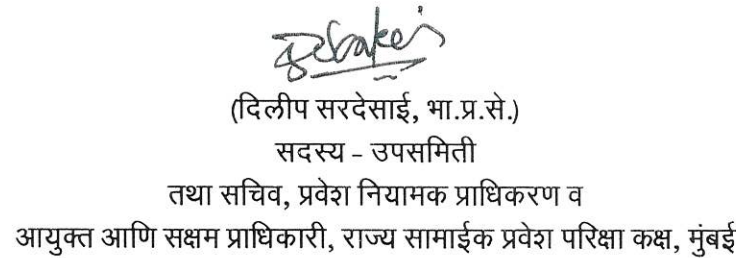 (दिलीप सरदेसाई, भा.प्र.से.)
सदस्य - उपसमिती
तथा सचिव, प्रवेश नियामक प्राधिकरण व
आयुक्त आणि सक्षम प्राधिकारी, राज्य सामाईक प्रवेश परिक्षा कक्ष, मुंबई